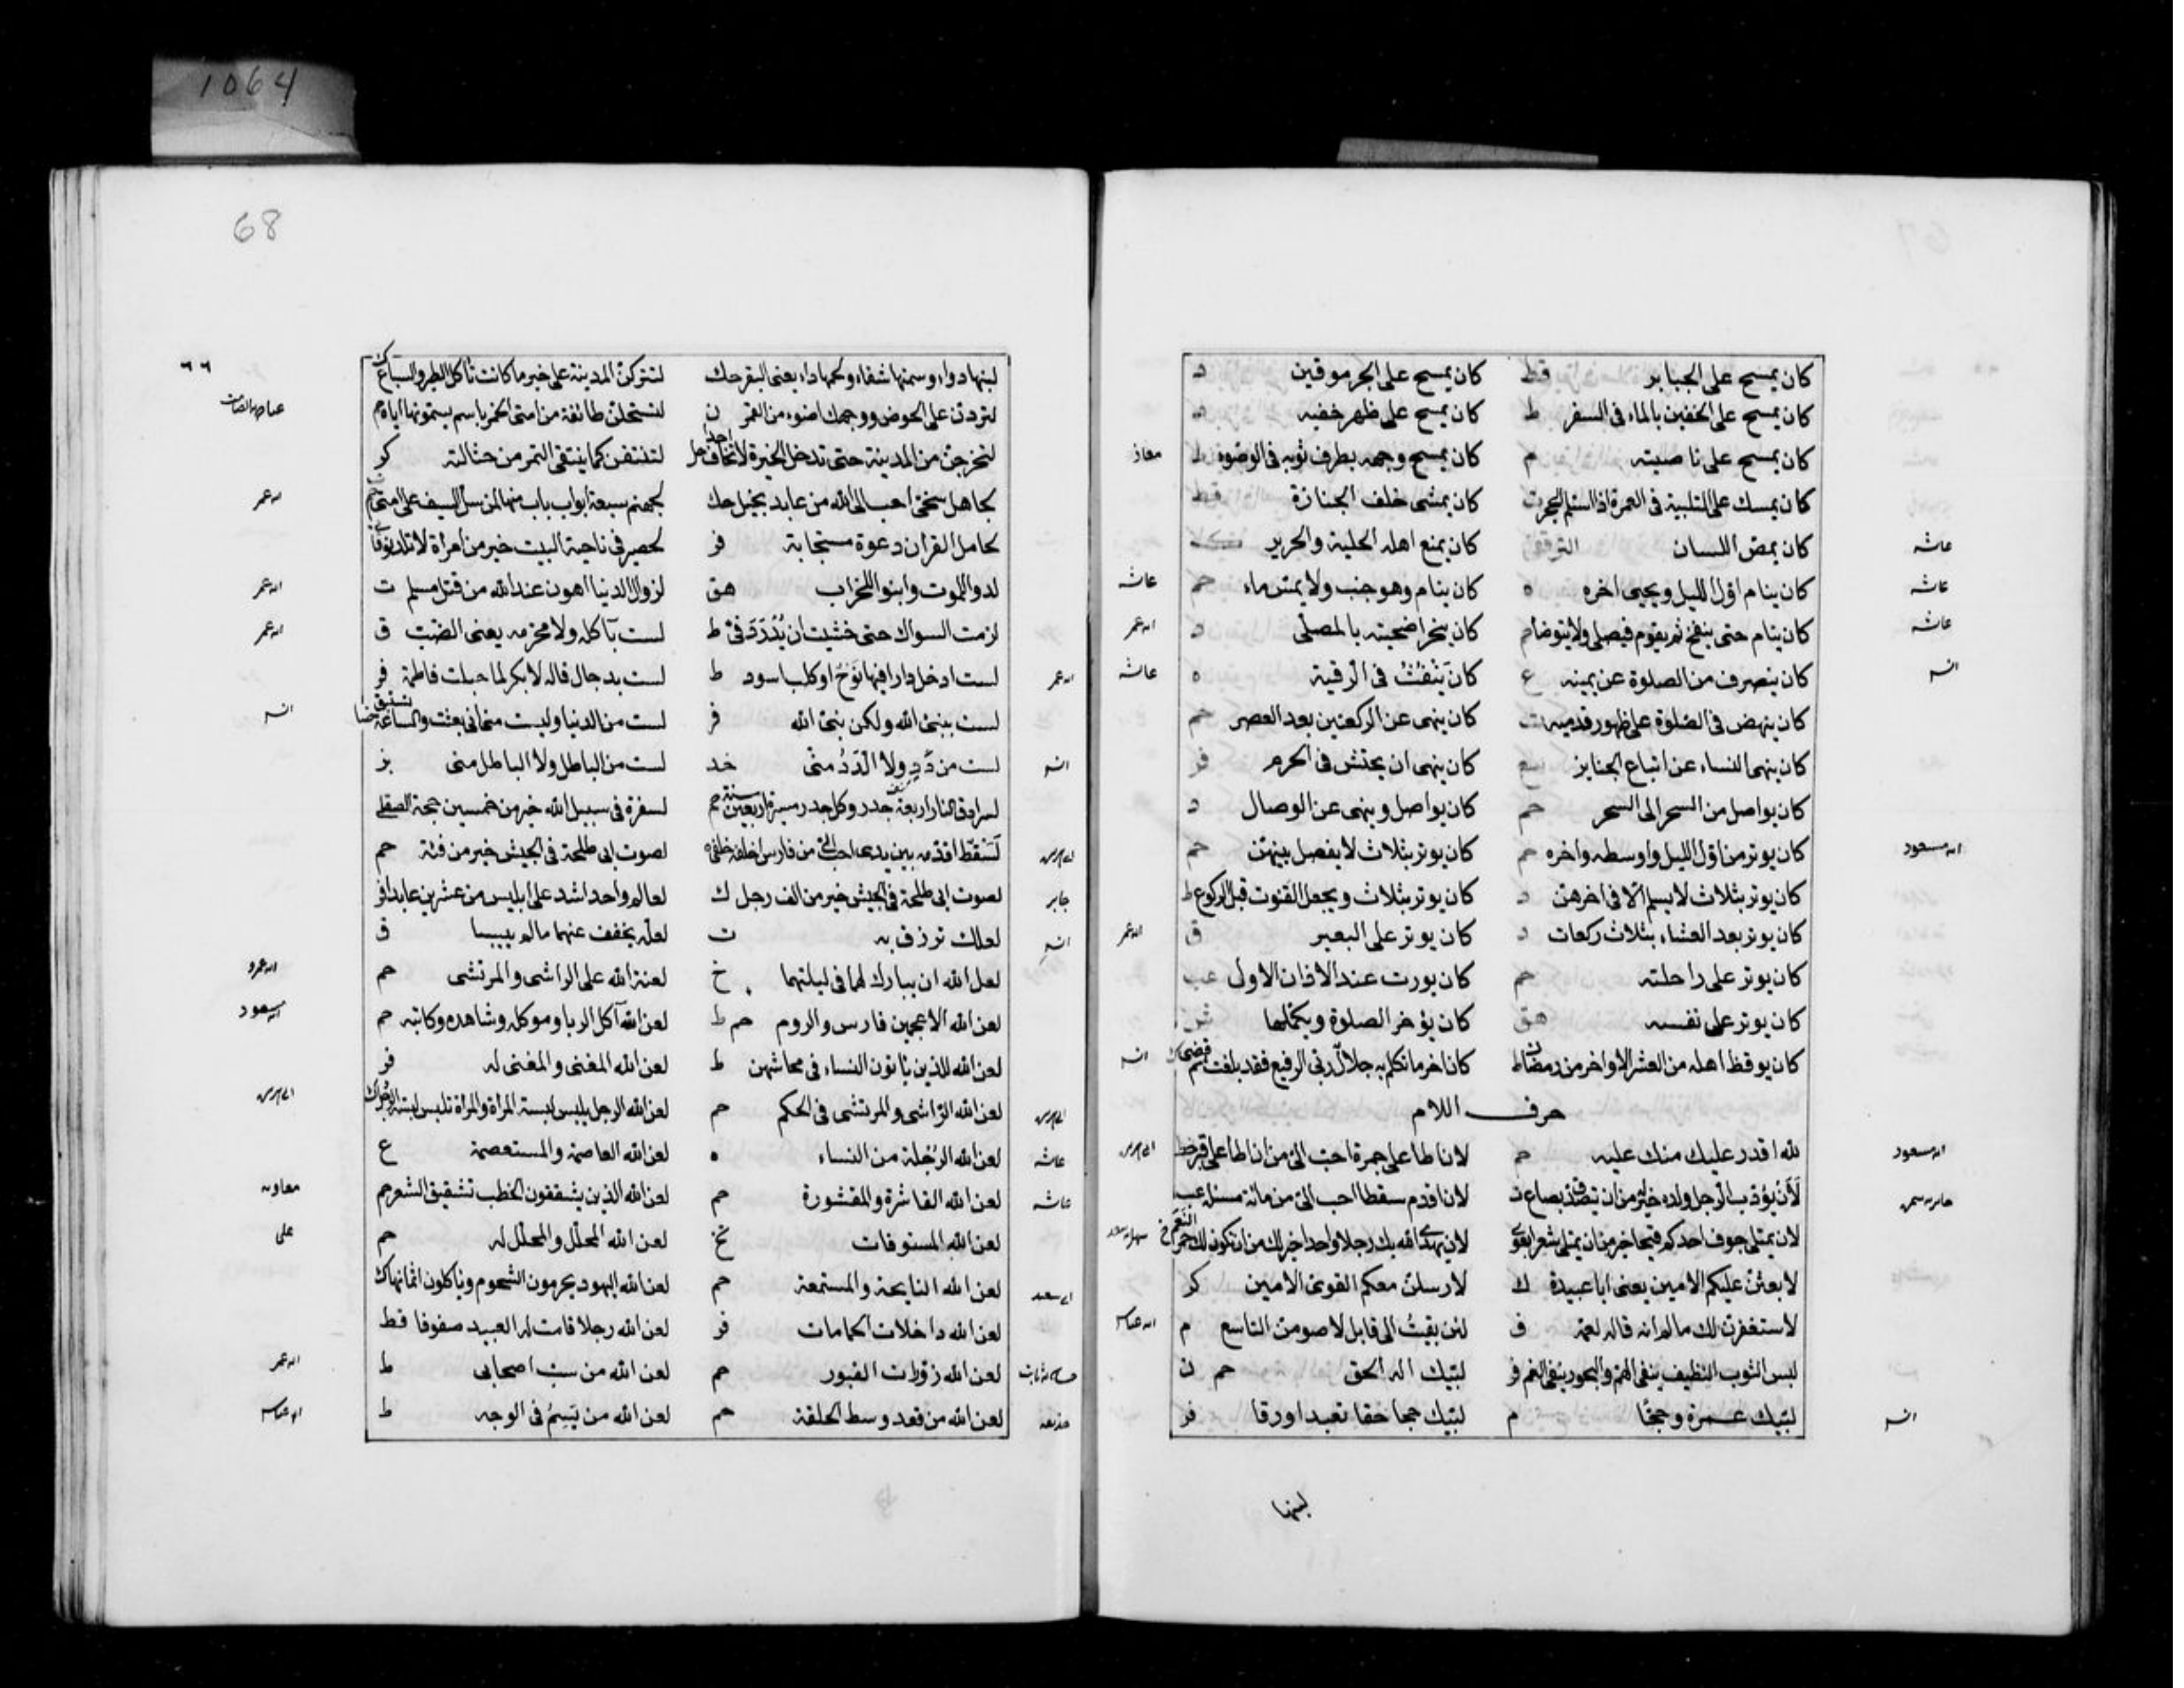 1064
كان يمسح على الجباير قط كان يمسح على الجرموقين د
كان يمسح على الخفين بالماء فى السفر ط كان يمسح على ظهر خفيه د
كان يمسح على ناصيته م كان يمسح وجهه بطرف ثوبه فى الوضوء ط معاذ
كان يمسك على التلبية فى العمرة اذا استلم الحجر ت كان يمشى خلف الجنازة قط
عائشه كان يمص اللسان الترقفى كان يمنع اهله الحلية والحرير
عائشه كان ينام اول الليل ويحيى اخره ه كان ينام وهو جنب ولا يمس ماء حم عائشه
عائشه كان ينام حتى ينفخ ثم يقوم فيصلى ولا يتوضا حم كان ينحر اضحيته بالمصلى د ابن عمر
انس كان ينصرف من الصلوة عن يمينه ع كان ينفث فى الرقية ه عائشه
كان ينهض فى الصلوة على ظهور قدميه ت كان ينهى عن الركعتين بعد العصر حم
كان ينهى النساء عن اتباع الجنايز كان ينهى ان يحتش فى الحرم فر
كان يواصل من السحر الى السحر حم كان يواصل وينهى عن الوصال د
ابن مسعود كان يوتر من اول الليل واوسطه واخره حم كان يوتر بثلاث لا يفصل بينهن حم
كان يوتر بثلاث لا يسلم الا فى اخرهن د كان يوتر بثلاث ويجعل القنوت قبل الركوع ط
كان يوتر بعد العشاء بثلاث ركعات د كان يوتر على البعير ق ابن عمر
كان يوتر على راحلته حم كان يورت عند الاذان الاول عب
كان يوتر على نفسه هق كان يؤخر الصلوة ويكملها ش
كان يوقظ اهله من العشر الاواخر من رمضان ط كان اخر ما تكلم به جلال ربى الرفيع فقد بلغت ثم قضى ك انس
حرف اللام
ابن مسعود لله اقدر عليك منك عليه م لان اطا على جمرة احب الى من ان اطا على قبر خط
لأن يؤدب الرجل ولده خير له من ان يتصدق بصاع ت لان اقدم سقطا احب الى من مائة مستلئم
لان يمتلى جوف احدكم قيحا خير من ان يمتلى شعرا لان يهدى الله بك رجلا واحدا خير لك من ان تكون لك حمر النعم
لابعثن عليكم الامين يعنى ابا عبيدة ك لارسلن معكم القوى الامين كر
لاستغفرن لك مالم انه قاله لعمه ق لئن بقيت الى قابل لاصومن التاسع م ابن عباس
لبس الثوب النظيف ينفى الهم والبخور ينفى الغم فر لبيك اله الحق حم ن
انس لبيك عمرة وحجا م لبيك حجا حقا تعبدا ورقا فر
لبنها
68
٦٦
لبنها دواء وسمنها شفاء ولحمها داء يعنى البقر حك لتتركن المدينة على خير ما كانت تأكل الطير والسباع ك
لتردن على الحوض ووجهك اضوء من القمر ن لتستحلن طائفة من امتى الخمر باسم يسمونها اياه حم
لتخرجن من المدينة حتى تدخل الحيرة لا تخاف احدا لتنتقن كما ينتقى التمر من حثالته كر
لجاهل سخى احب الى الله من عابد بخيل حك لجهنم سبعة ابواب باب منها لمن سل السيف على امتى حم ابن عمر
لحامل القران دعوة مستجابة فر لحصير فى ناحية البيت خير من امراة لا تلد
لدوا للموت وابنوا للخراب هق لزوال الدنيا اهون عند الله من قتل مسلم ت ابن عمر
لزمت السواك حتى خشيت ان يدرد فى ط لست بآكله ولا محرمه يعنى الضب ق ابن عمر
ابن عمر لست ادخل دارا فيها نوح او كلب اسود ط لست بدجال قاله لابى بكر لما خطب فاطمة فر
لست بنبئ الله ولكن نبى الله فر لست من الدنيا وليست منى انى بعثت والساعة تستبق ضيا انس
انس لست من دد ولا الدد منى خد لست من الباطل ولا الباطل منى بز
لسرادق النار اربعة جدر وكل جدر مسيرة اربعين سنة حم لسفرة فى سبيل الله خير من خمسين حجة
لسقط اقدمه بين يدى احب الى من فارس اخلفه خلفى ه لصوت ابى طلحة فى الجيش خير من فئة حم
جابر لصوت ابى طلحة فى الجيش خير من الف رجل ك لعالم واحد اشد على ابليس من عشرين عابدا فر
انس لعلك ترزق به ت لعله يخفف عنهما مالم ييبسا ق
لعل الله ان يبارك لهما فى ليلتهما خ لعنة الله على الراشى والمرتشى حم ابن عمرو
لعن الله الاعجمين فارس والروم حم ط لعن الله آكل الربا وموكله وشاهده وكاتبه حم ابن مسعود
لعن الله الذين يأتون النساء فى محاشهن ط لعن الله المغنى والمغنى له فر
لعن الله الراشى والمرتشى فى الحكم حم لعن الله الرجل يلبس لبسة المراة والمراة تلبس لبسة الرجل ك
عائشه لعن الله الرجلة من النساء ه لعن الله العاضهة والمستعضهة ع
عائشه لعن الله القاشرة والمقشورة حم لعن الله الذين يشققون الخطب تشقيق الشعر حم معاويه
لعن الله المسوفات تخ لعن الله المحلل والمحلل له حم على
ابى سعيد لعن الله النايحة والمستمعة حم لعن الله اليهود يحرمون الشحوم وياكلون اثمانها ك
لعن الله داخلات الحمامات فر لعن الله رجلا قامت له العبيد صفوفا قط
حسان بن ثابت لعن الله زوارات القبور حم لعن الله من سب اصحابى ط ابن عمر
حذيفه لعن الله من قعد وسط الحلقة حم لعن الله من يسم فى الوجه ط ابن عباس